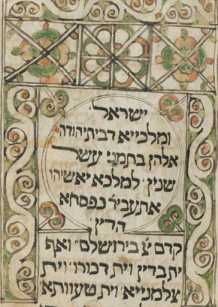 ישראל
ומלכייא דביתיהודה
אלהן בתמני עשר
שנין למלכא יאשיהו
אתעביד פסחא
הדין
קדם יי בירושלם ואף
ית בדין וית דכורו וית
צלמנייא וית טעוותא